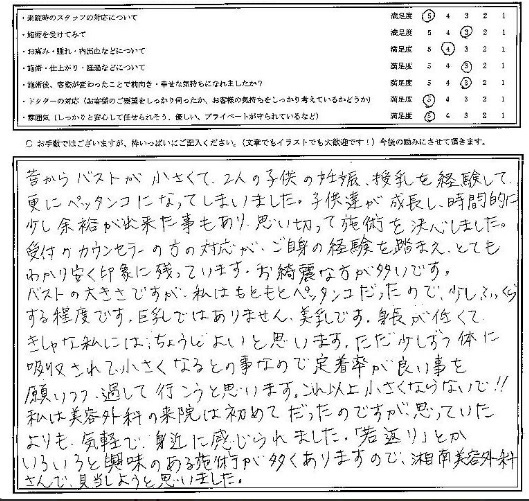 ・来院時のスタッフの対応について 満足度 5 4 3 2 1
・施術を受けてみて 満足度 5 4 3 2 1
・お痛み・腫れ・内出血などについて 満足度 5 4 3 2 1
・施術・仕上がり・経過などについて 満足度 5 4 3 2 1
・施術後、容姿が変わったことで前向き・幸せな気持ちになれましたか？ 満足度 5 4 3 2 1
・ドクターの対応（お客様のご要望をしっかり伺ったか、お客様の気持ちをしっかり考えているかどうか） 満足度 5 4 3 2 1
・雰囲気（しっかりと安心して任せられそう、優しい、プライベートが守られているなど） 満足度 5 4 3 2 1
○ お手数ではございますが、枠いっぱいにご記入ください。（文章でもイラストでも大歓迎です！）今後の励みにさせて頂きます。
昔からバストが小さくて、2人の子供の妊娠、授乳を経験して、
更にペッタンコになってしまいました。子供達が成長し、時間的に
少し余裕が出来た事もあり、思い切って施術を決心しました。
受付のカウンセラーの方の対応が、ご自身の経験を踏まえ、とても
わかり安く印象に残っています。お綺麗な方が多いです。
バストの大きさですが、私はもともとペッタンコだったので、少しふっくら
する程度です。巨乳ではありません。美乳です。身長が低くて、
きしゃな私には、ちょうどよいと思います。ただ少しずつ体に
吸収されて小さくなるとの事なので定着率が良い事を
願いつつ、過して行こうと思います。これ以上小さくならないで!!
私は美容外科の来院は初めてだったのですが思っていた
よりも、気軽で、身近に感じられました。「若返り」とか
いろいろと興味のある施術が多くありますので、湘南美容外科
さんで、見当しようと思いました。